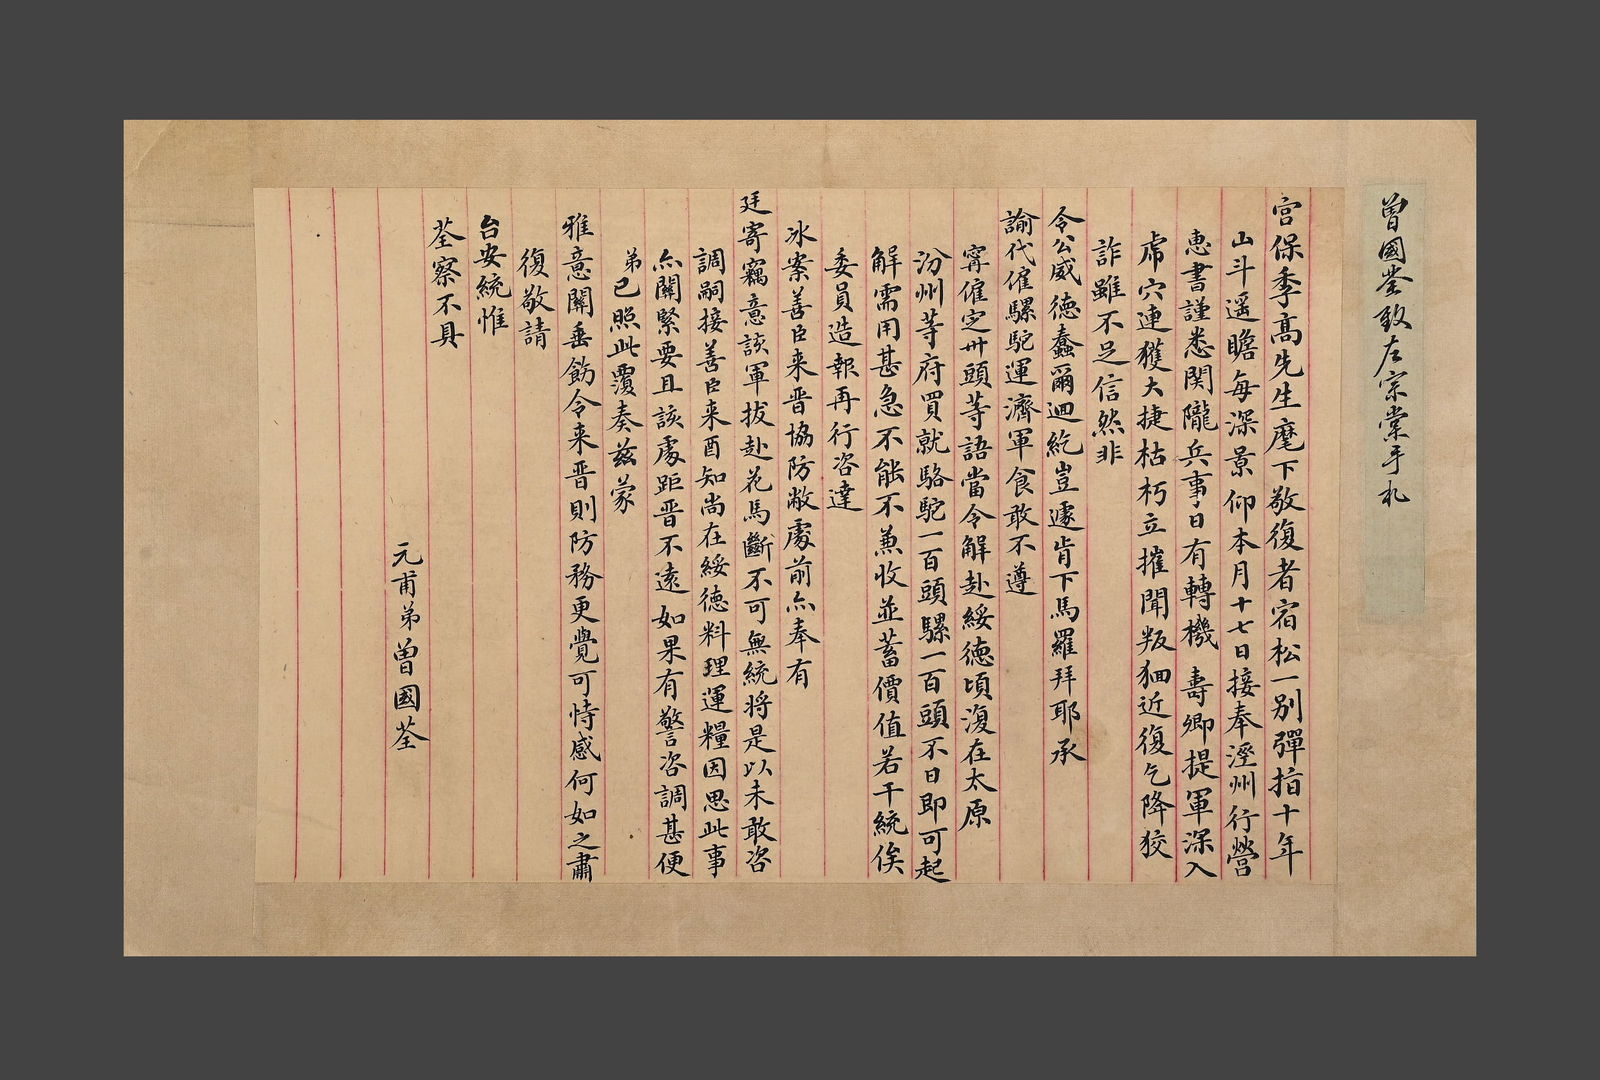 曾國荃致左宗棠手札
宮保季高先生麾下敬復者宿松一別彈指十年
山斗遥瞻每深景仰本月十七日接奉涇州行營
惠書謹悉関隴兵事日有轉機 壽卿提軍深入
虎穴連獲大捷枯朽立摧聞叛狪近復乞降狡
詐雖不足信然非
令公威德蠢爾迴紇豈遽肯下馬羅拜耶承
諭代僱騾駝運濟軍食敢不遵
甯僱定卅頭等語當令解赴綏德頃復在太原
汾州等府買就駱駝一百頭騾一百頭不日即可起
解需用甚急不能不兼收並蓄價值若干統俟
委員造報再行咨達
冰案善臣来晋協防敝處前亦奉有
廷寄竊意該軍拔赴花馬斷不可無統将是以未敢咨
調嗣接善臣来酉知尚在綏德料理運糧因思此事
亦關緊要且該處距晋不遠如果有警咨調甚便
弟已照此覆奏兹蒙
雅意關垂飭令来晋則防務更覺可恃感何如之肅
復敬請
台安統惟
荃察不具
元甫弟曾國荃